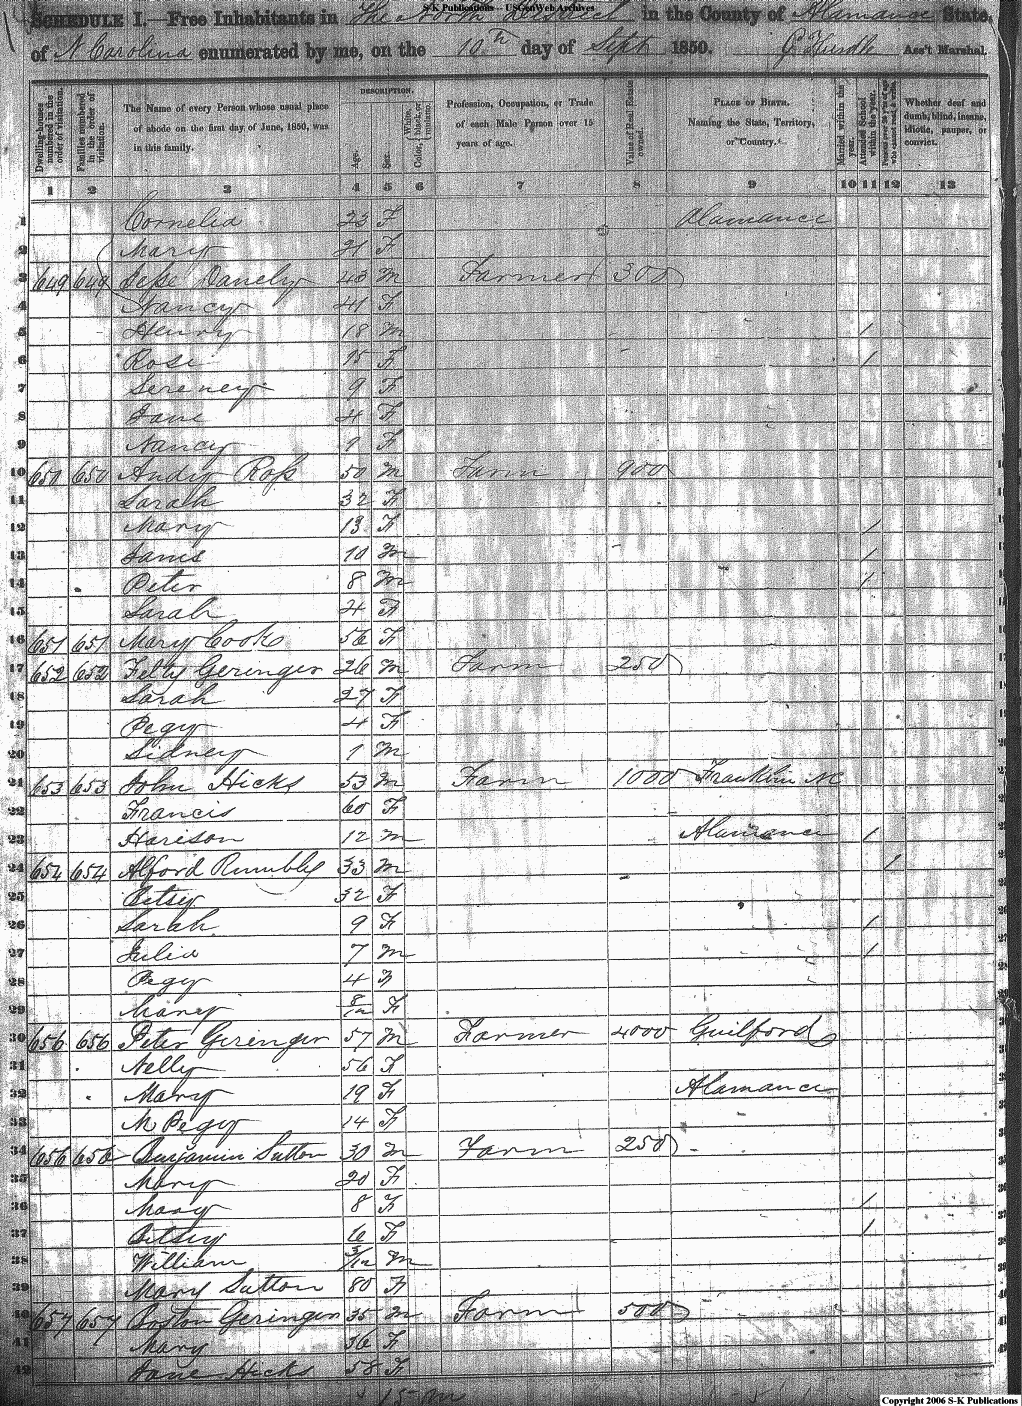 S-K Publications - USGenWeb Archives
SCHEDULE I.—Free Inhabitants in The North District in the County of Alamance State,
of N Carolina enumerated by me, on the 10th day of Sept 1850. Ass't Marshal.
Dwelling-houses numbered in the order of visitation.
Families numbered in the order of visitation.
The Name of every Person whose usual place of abode on the first day of June, 1850, was in this family.
DESCRIPTION.
Age.
Sex.
Color, White, black, or mulatto.
Profession, Occupation, or Trade of each Male Person over 15 years of age.
Value of Real Estate owned.
PLACE OF BIRTH. Naming the State, Territory, or Country.
Married within the year.
Attended School within the year.
Persons over 20 y'rs of age who cannot read & write.
Whether deaf and dumb, blind, insane, idiotic, pauper, or convict.
1 2 3 4 5 6 7 8 9 10 11 12 13
1 Cornelia 23 F Alamance
2 Mary 21 F
3 649 649 Jesse 43 M Farmer 300
4 Nancy 41 F
5 Henry 18 M /
6 Rose 15 F /
7 Sereney 9 F
8 Jane 4 F
9 Nancy 1 F
10 650 650 Andy Ross 50 M Farm 900
11 Sarah 32 F
12 Mary 13 F /
13 James 10 M /
14 Peter 8 M /
15 Sarah 4 F
16 651 651 Mary Cook 56 F
17 652 652 Felty Geringer 26 M Farm 250
18 Sarah 27 F
19 Pegy 4 F
20 Sidney 1 M
21 653 653 John Hicks 53 M Farm 1000 Franklin NC
22 Francis 60 F
23 Harison 12 M Alamance /
24 654 654 Alford Rumbly 33 M /
25 Betsy 32 F
26 Sarah 9 F /
27 Julia 7 M /
28 Pegy 4 F
29 Mary 8/12 F
30 656 656 Peter Geringer 57 M Farmer 4000 Guilford
31 Nelly 56 F
32 Mary 19 F Alamance
33 M Pegy 14 F
34 656 656 Benjamin Sutton 30 M Farm 250
35 Mary 20 F
36 Mary 8 F /
37 Betsey 6 F /
38 William 3/12 M
39 Mary Sutton 80 F
40 657 657 Boston Geringer 35 M Farm 500
41 Mary 36 F
42 Jane Hicks 58 F
15 M
Copyright 2006 S-K Publications